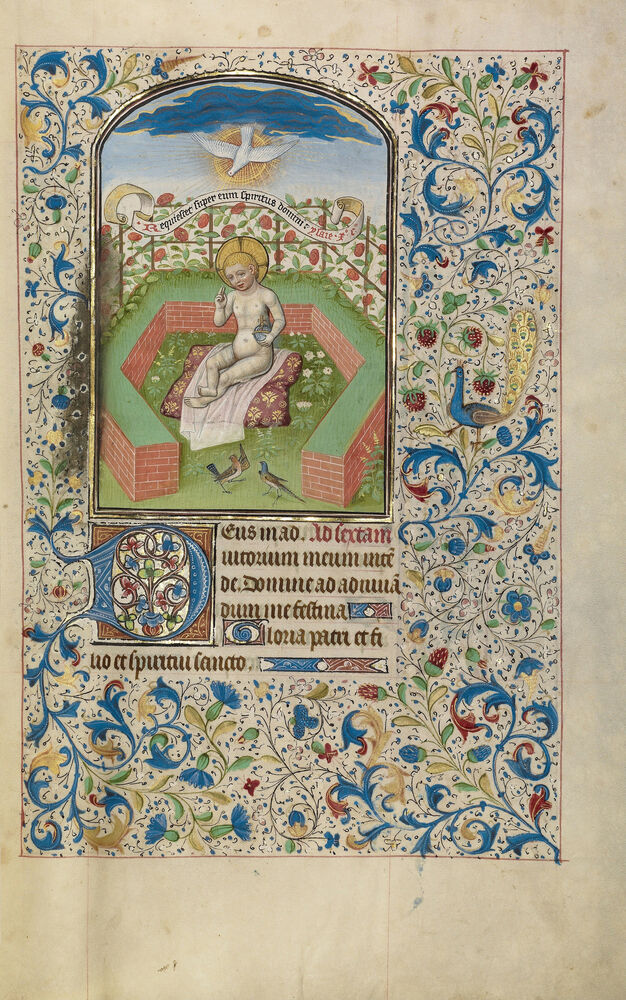 Requiescet super eum spiritus domini: ysaie. xi. c
Deus in ad. Ad sextam
iutorium meum intē
de. Domine ad adiuuā
dum me festina
Gloria patri et fi
lio et spiritui sancto.